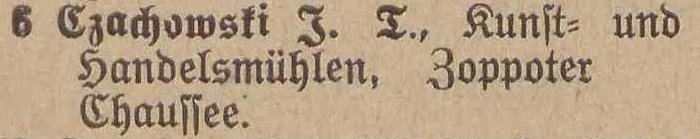 6 Czachowski J. T., Kunſt= und
Handelsmühlen, Zoppoter
Chauſſee.